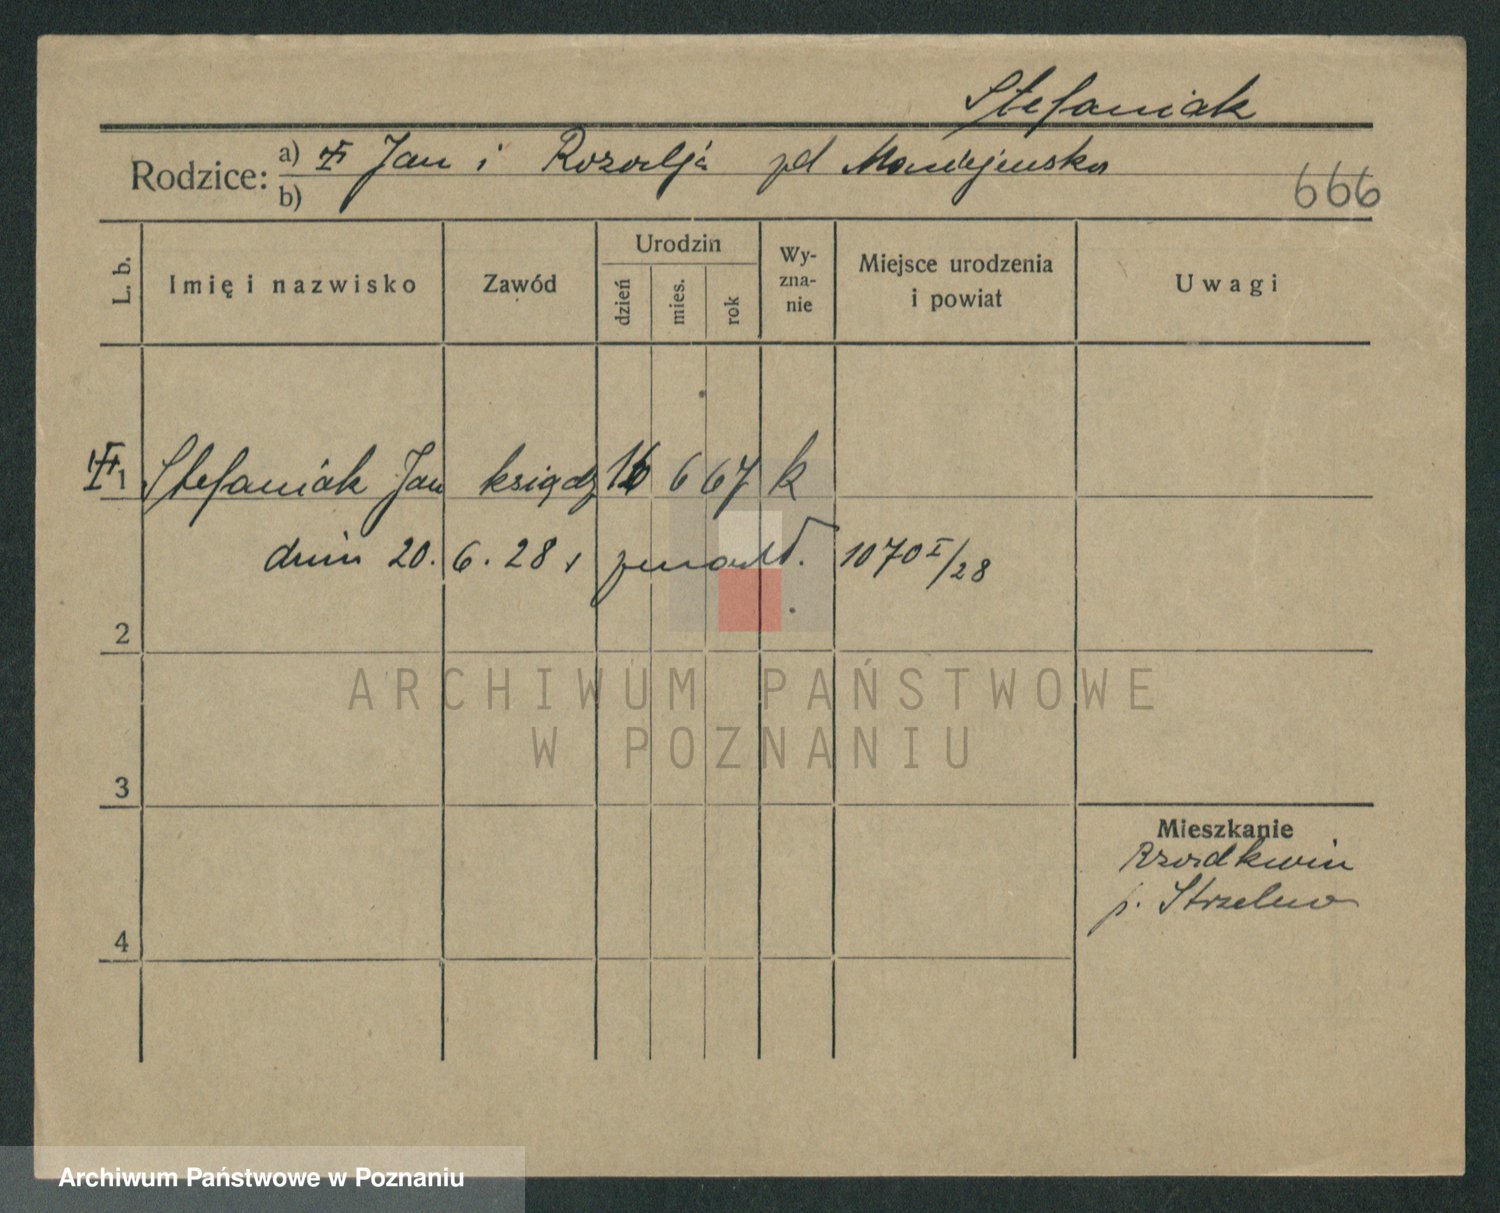 Stefaniak
Rodzice: a) Jan i Rozalja zd Maciejewska
b)
666
L. b.
Imię i nazwisko
Zawód
Urodzin
dzień
mies.
rok
Wy-
zna-
nie
Miejsce urodzenia
i powiat
Uwagi
1 Stefaniak Jan ksiądz 16 6 67 k
dnia 20. 6. 28 r zmarł. 1070 I/28
2
3
4
Mieszkanie
Rzadkwin
p. Strzelno
ARCHIWUM PAŃSTWOWE
W POZNANIU
Archiwum Państwowe w Poznaniu